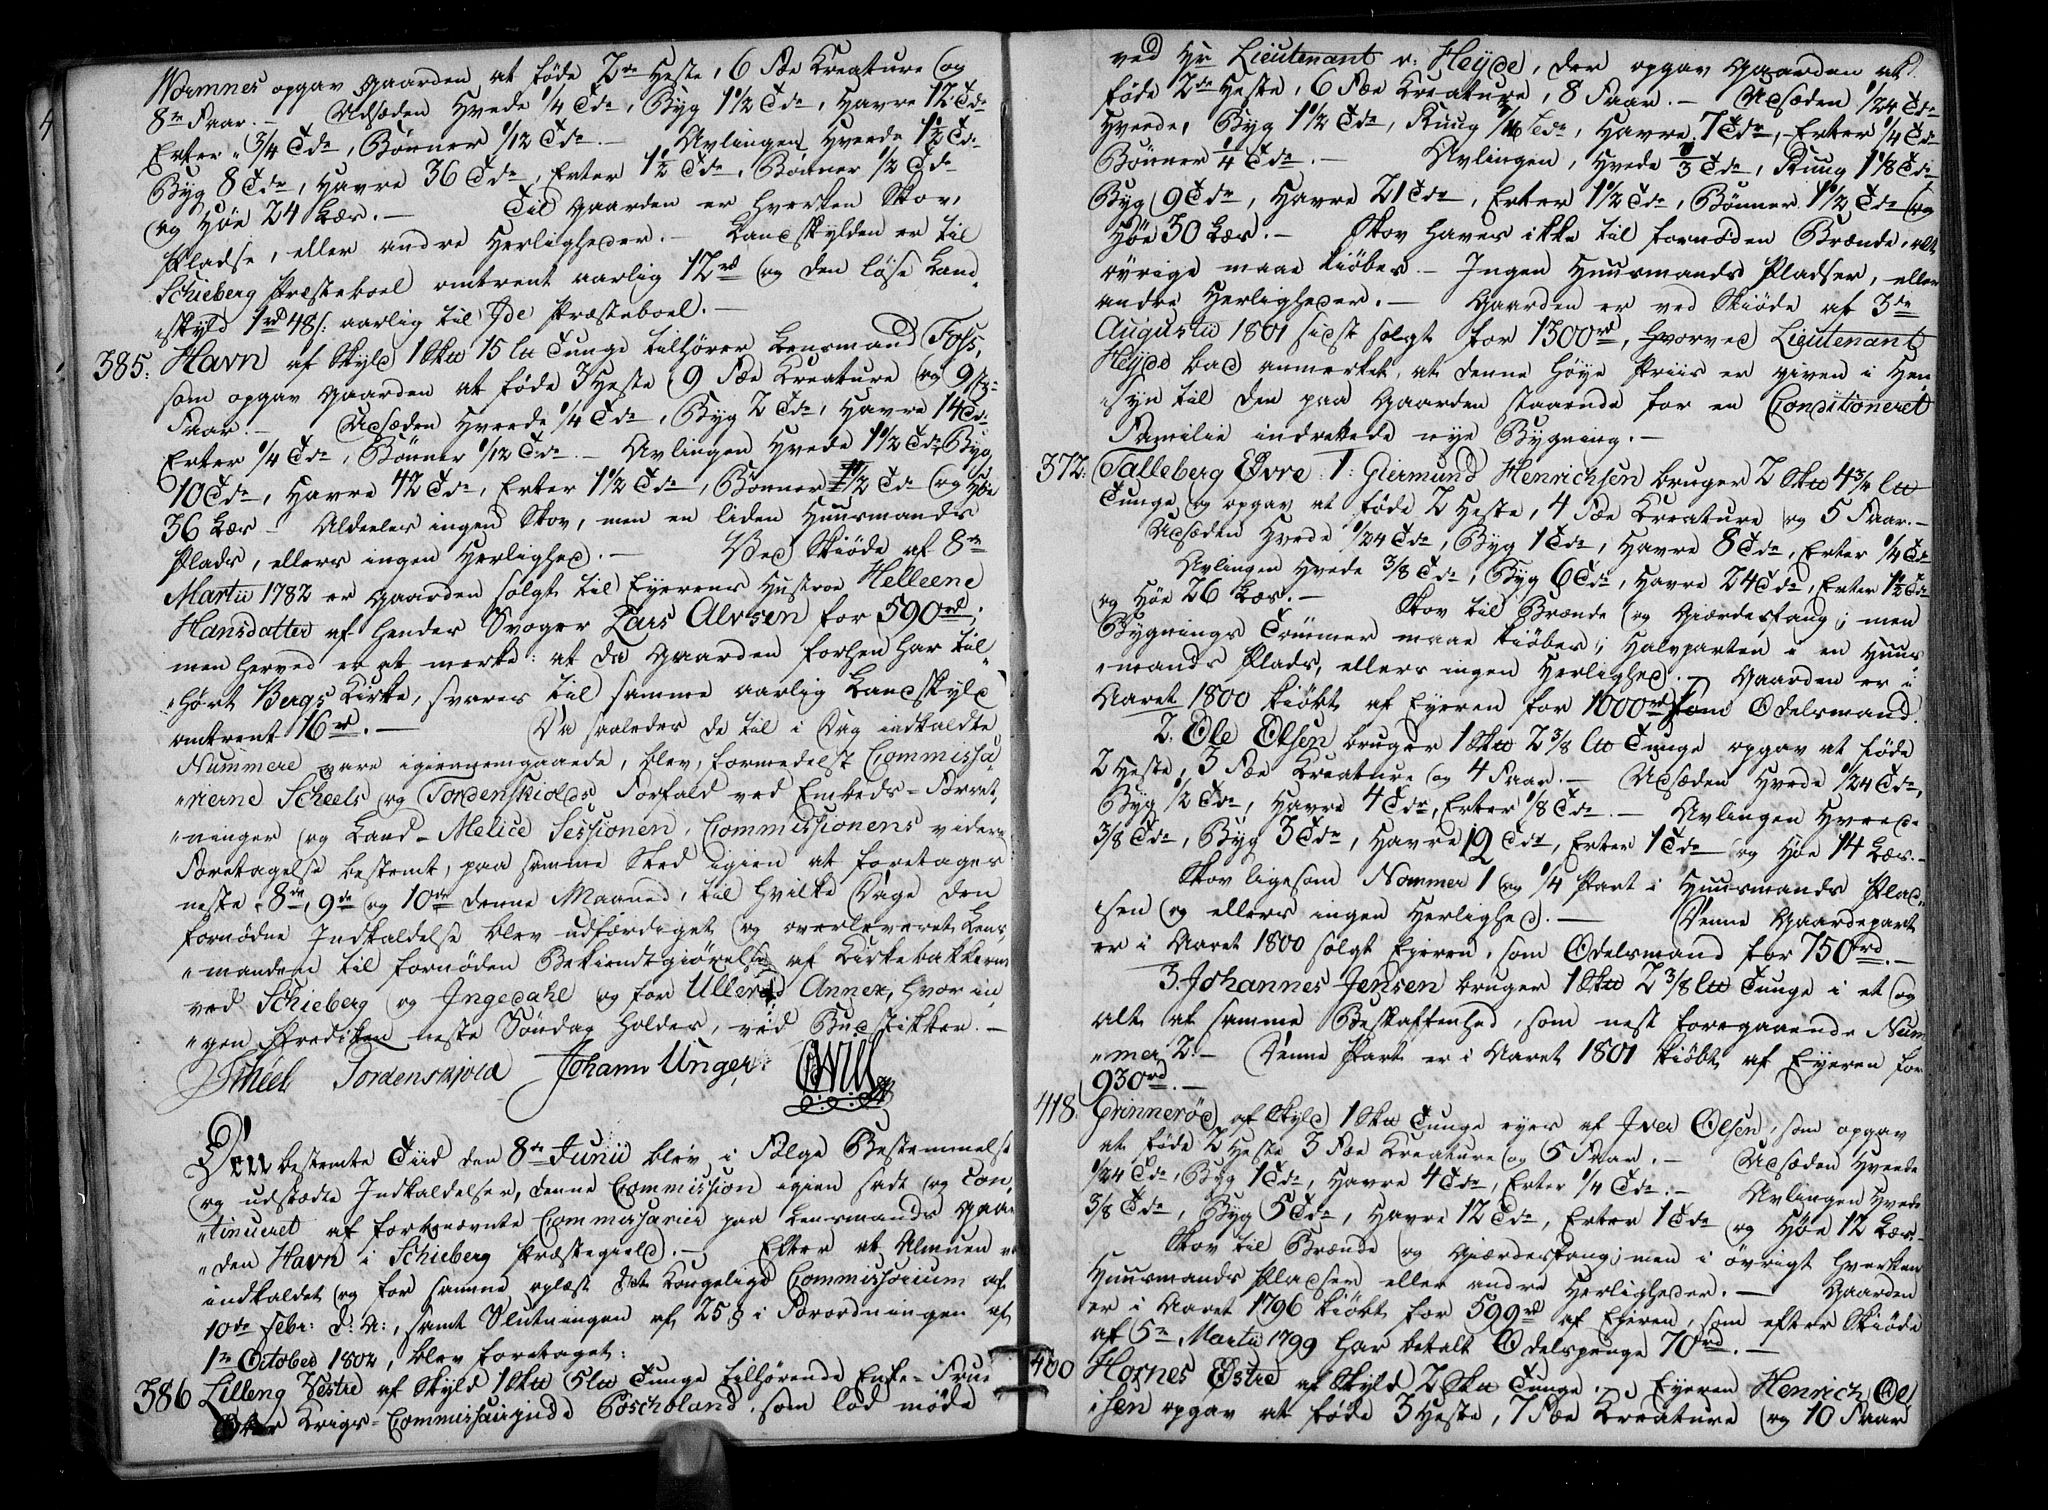 Wormnes opgav Gaarden at føde 2de Heste, 6 Fæe Kreature og
8te Faar. – Udsæden Hvede 1/4 Tde, Byg 1 1/2 Tde, Havre 12 Tde
Erter 3/4 Tde, Bønner 1/12 Tde. – Avlingen Hvede 1 1/2 Tde
Byg 8 Tde, Havre 36 Tde, Erter 1 1/2 Tde, Bønner 1/2 Tde
og Høe 24 Læs. – Til Gaarden er hverken Skov,
Pladse, eller andre Herligheder. – Landskylden er til
Schieberg Præsteboel omtrent aarlig 12 rd og den løse Land„
„skyld 1 rd 48 s: aarlig til Ide Præsteboel. –
385: Havn af Skyld 1 Skd 15 Ld Tunge tilhører Lensmand Foss,
som opgav Gaarden at føde 3 Heste, 9 Fæe Kreature og 9
Faar. – Udsæden Hvede 1/4 Tde, Byg 2 Tde, Havre 14 Tde
Erter 1/4 Tde, Bønner 1/12 Tde. – Avlingen Hvede 1 1/2 Tde Byg
10 Tde, Havre 42 Tde, Erter 1 1/2 Tde, Bønner 1/2 Tde og Høe
36 Læs – Aldeeles ingen Skov, men en liden Huusmands
Plads, ellers ingen Herlighed. – Ved Skiøde af 8de
Martii 1782 er Gaarden solgt til Eyerens Hustroe Helleene
Hansdatter af hendes Svoger Lars Alvsen for 590 rd,
men herved er at merke: at da Gaarden forhen har til„
„hørt Bergs Kirke, svares til samme aarlig Landskyld
omtrent 16 rd. – Da saaledes de til i Dag indkaldte
Nummere vare igiennemgaaede, blev, formedelst Commissa„
„rierne Scheels og Tordenskiolds Forfald ved Embeds-Forret„
„ninger og Land-Melice Sessionen, Commissionens videre
Foretagelse bestemt, paa samme Sted igien at foretages
neste 8de, 9de og 10de denne Maaned, til hvilke Dage den
fornødne Indkaldelse blev udfærdiget og overleveret Lens„
„manden til fornøden Bekiendtgiørelse af Kirkebakkerne
ved Schieberg og Ingedahl og for Ullerød Annex, hvor in
„gen Prediken neste Søndag holdes, ved Budstikken. –
Scheel Tordenskjold Johann Unger OWill
Den bestemte Tiid den 8de Junii blev i Følge Bestemmelse
og udstædte Indkaldelser, denne Commission igien sadt og con„
„tinueret af forbenævnte Commissarier paa Lensmands Gaar
„den Havn i Schieberg Præstegield. – Efter at Almuen
indkaldet og for samme oplæst det Kongelige Commissorium af
10de Febr: d: A:, samt Slutningen af 25 § i Forordningen af
1te October 1802, blev foretaget:
386 Lilleng Vestre af Skyld 1 Skd 5 Ld Tunge tilhørende Enke-Frue
Krigs-Commissairinde Coschbland, som lod møde
ved Hr Lieutenant v. Heyde, der opgav Gaarden at
føde 2de Heste, 6 Fæe Kreature, 8 Faar. – Udsæden 1/24 Tde
Hvede, Byg 1 1/2 Tde, Ruug 1/16 Tde, Havre 7 Tde, Erter 1/4 Tde
Bønner 1/4 Tde. – Avlingen, Hvede 1/3 Tde, Rung 1 1/8 Tde
Byg 9 Tde, Havre 21 Tde, Erter 1 1/2 Tde, Bønner 1 1/2 Tde og
Høe 30 Læs. – Skov haves ikke til fornøden Brænde, alt
øvrige maae kiøbes. – Ingen Huusmands Pladser, eller
andre Herligheder. – Gaarden er ved Skiøde af 3de
Augustii 1801 sidst solgt for 1300 rd, hvorved Lieutenant
Heyde bad anmerket, at denne høye Priis er given i Hen
„syn til den paa Gaarden staaende for en Conditioneret
Familie indrettede nye Bygning. –
372: Talleberg Øvre 1: Giermund Henrichsen bruger 2 Skd 4 3/4 Ld
Tunge og opgav at føde 2 Heste, 4 Fæe Kreature og 5 Faar. –
Udsæden Hvede 1/24 Tde, Byg 1 Tde, Havre 8 Tde, Erter 1/4 Tde
Avlingen Hvede 3/8 Tde, Byg 6 Tde, Havre 24 Tde, Erter 1 1/2 Tde
og Høe 26 Læs. – Skov til Brænde og Giærdesfang; men
Bygnings Tømmer maae kiøbes; Halvparten i en Huus
„mands Plads, ellers ingen Herlighed. – Gaarden er i
Aaret 1800 kiøbt af Eyeren for 1000 rd som Odelsmand.
2. Ole Olsen bruger 1 Skd 2 3/8 Ld Tunge opgav at føde
2 Heste, 3 Fæe Kreature og 4 Faar. – Udsæden Hvede 1/24 Tde,
Byg 1/2 Tde, Havre 4 Tde, Erter 1/8 Tde. – Avlingen Hvede
3/8 Tde, Byg 3 Tde, Havre 12 Tde, Erter 1 Tde og Høe 14 Læs. –
Skov ligesom Nommer 1 og 1/4 Part i Huusmands Plad„
„sen og ellers ingen Herlighed. – Denne Gaardepart
er i Aaret 1800 solgt Eyeren, som Odelsmand for 750 rd. –
3. Johannes Jensen bruger 1 Skd 2 3/8 Ld Tunge i et og
alt at samme Beskaffenhed, som nest foregaaende Num
„mer 2. – Denne Part er i Aaret 1801 kiøbt af Eyeren for
930 rd. –
418. Grinnerød af Skyld 1 Skd Tunge eyes af Iver Olsen, som opgav
at føde 2 Heste 3 Fæe Kreature og 5 Faar. – Udsæden Hvede
1/24 Tde, Byg 1 Tde, Havre 4 Tde, Erter 1/4 Tde. – Avlingen Hvede
3/8 Tde, Byg 5 Tde, Havre 12 Tde, Erter 1 Tde og Høe 12 Læs. –
Skov til Brænde og Giærdesfang; men i øvrigt hverken
Huusmands Pladser eller andre Herligheder. – Gaarden
er i Aaret 1796 kiøbt for 599 rd af Eyeren, som efter Skiøde
af 5te Martii 1799 har betalt Odelspenge 70 rd. –
400 Hornes Østre af Skyld 2 Skd Tunge. Eyeren Henrich Ol
„sen opgav at føde 3 Heste, 7 Fæe Kreature og 10 Faar